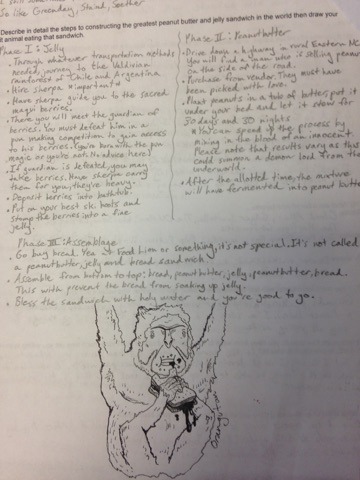 So like Greenday, Staind, Seether
Describe in detail the steps to constructing the greatest peanut butter and jelly sandwich in the world then draw your
animal eating that sandwich.
Phase I: Jelly
• Through whatever transportation methods
needed, journey to the Valdivian
rainforest of Chile and Argentina
• Hire sherpa *important
• Have sherpa guide you to the sacred
magic berries.
• There you will meet the guardian of
berries. You must defeat him in a
pun making competition to gain access
to his berries. (You're born with the pun
magic or you're not. No advice here)
• If guardian is defeated, you may
take berries. Have sherpa carry
them for you, they're heavy.
• Deposit berries into bathtub.
• Put on your best ski boots and
stomp the berries into a fine
jelly.
Phase II: Peanutbutter
• Drive down a highway in rural Western NC
You will find a man who is selling peanuts
on the side of the road.
• Purchase from vendor. They must have
been picked with love.
• Place peanuts in a tub of butter, put it
under your bed and let it stew for
30 days and 30 nights
*You can speed up the process by
mixing in the blood of an innocent.
Please note that results vary as this
could summon a demon lord from the
underworld.
• After the allotted time, the mixture
will have fermented into peanut butter
Phase III: Assemblage
• Go buy bread. Yea at Food Lion or something, it's not special. It's not called
a peanutbutter, jelly and bread sandwich
• Assemble from bottom to top: bread, peanutbutter, jelly, peanutbutter, bread.
This with prevent the bread from soaking up jelly.
• Bless the sandwich with holy water and you're good to go.